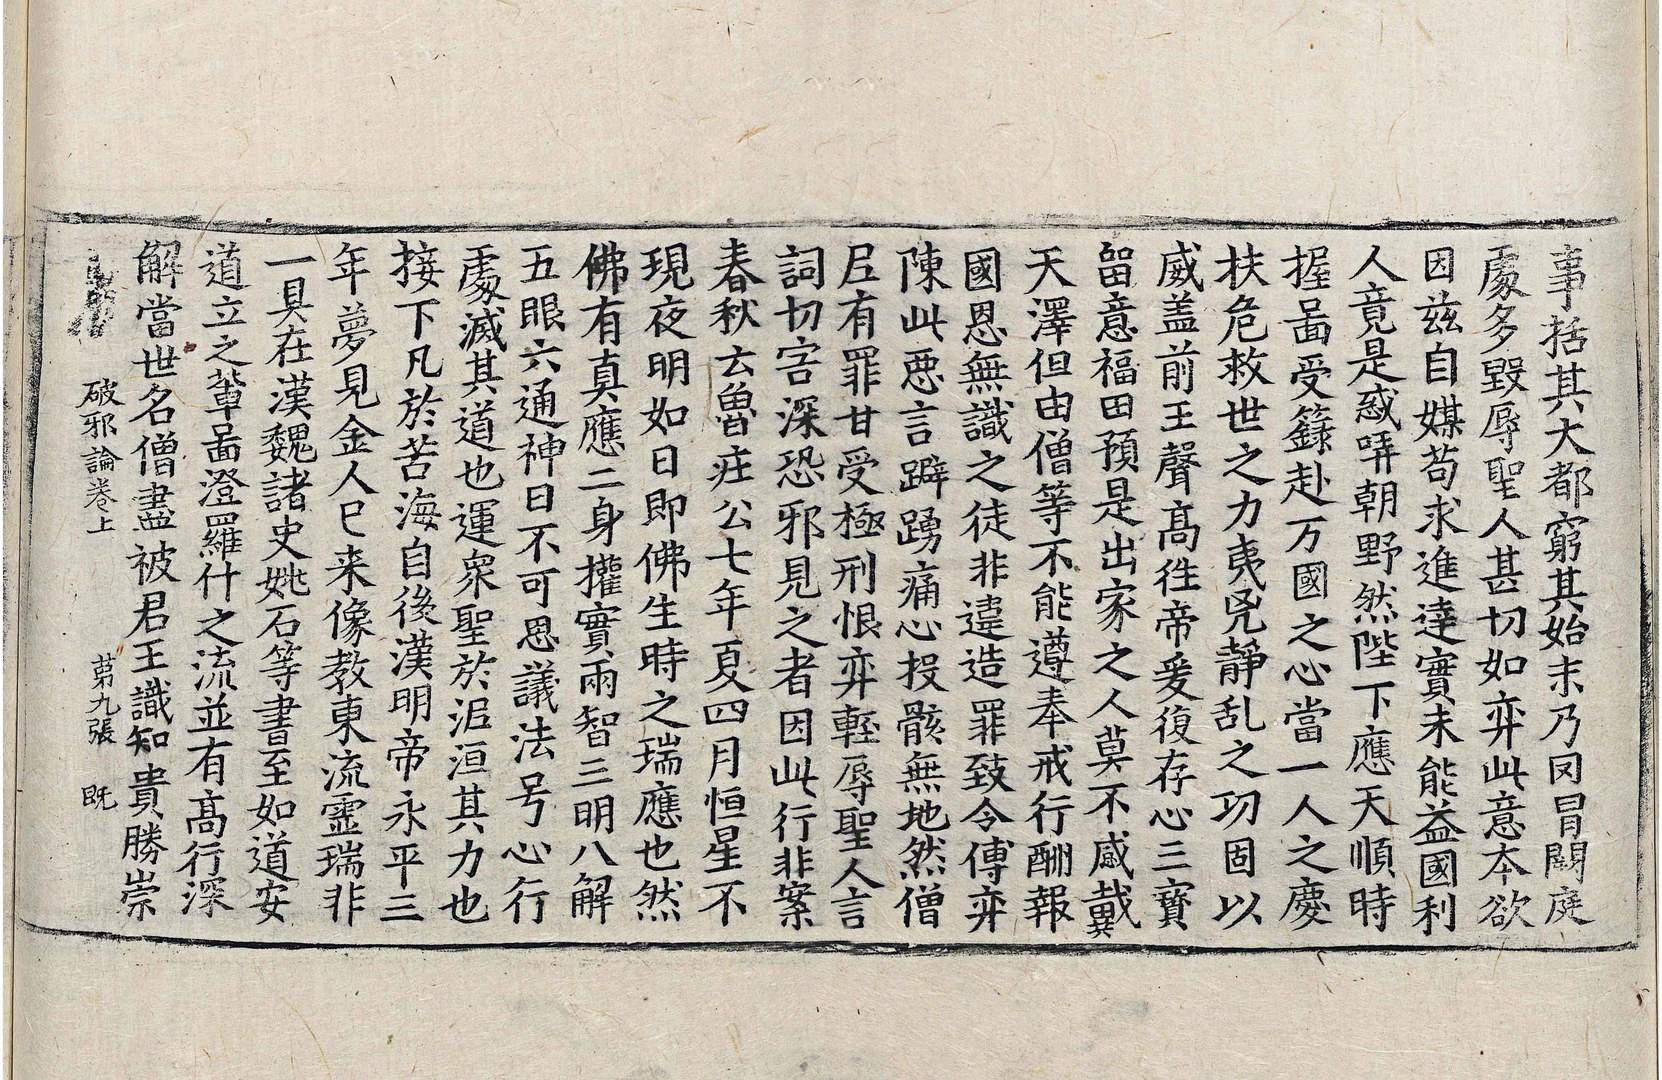 事括其大都窮其始末乃冈冒闕庭
處多毀辱聖人甚切如弈此意本欲
因兹自媒苟求進達實未能益國利
人竟是惑哢朝野然陛下應天順時
握啚受籙赴万國之心當一人之慶
扶危救世之力夷兇靜乱之功固以
威盖前王聲髙徃帝爰復存心三寳
留意福田預是出家之人莫不感戴冀
天澤但由僧等不能遵奉戒行酬報
國恩無識之徒非違造罪致令傅弈
陳此惡言擗踴痛心投骸無地然僧
尼有罪甘受極刑恨弈輕辱聖人言
詞切害深恐邪見之者因此行非案
春秋云魯莊公七年夏四月恒星不
現夜明如日即佛生時之瑞應也然
佛有真應二身權實兩智三明八解
五眼六通神曰不可思議法号心行
處滅其道也運衆聖於泥洹其力也
接下凡於苦海自後漢明帝永平三
年夢見金人已来像教東流靈瑞非
一具在漢魏諸史姚石等書至如道安
道立之輩啚澄羅什之流並有髙行深
解當世名僧盡被君王識知貴勝崇
破邪論卷上 第九張 既